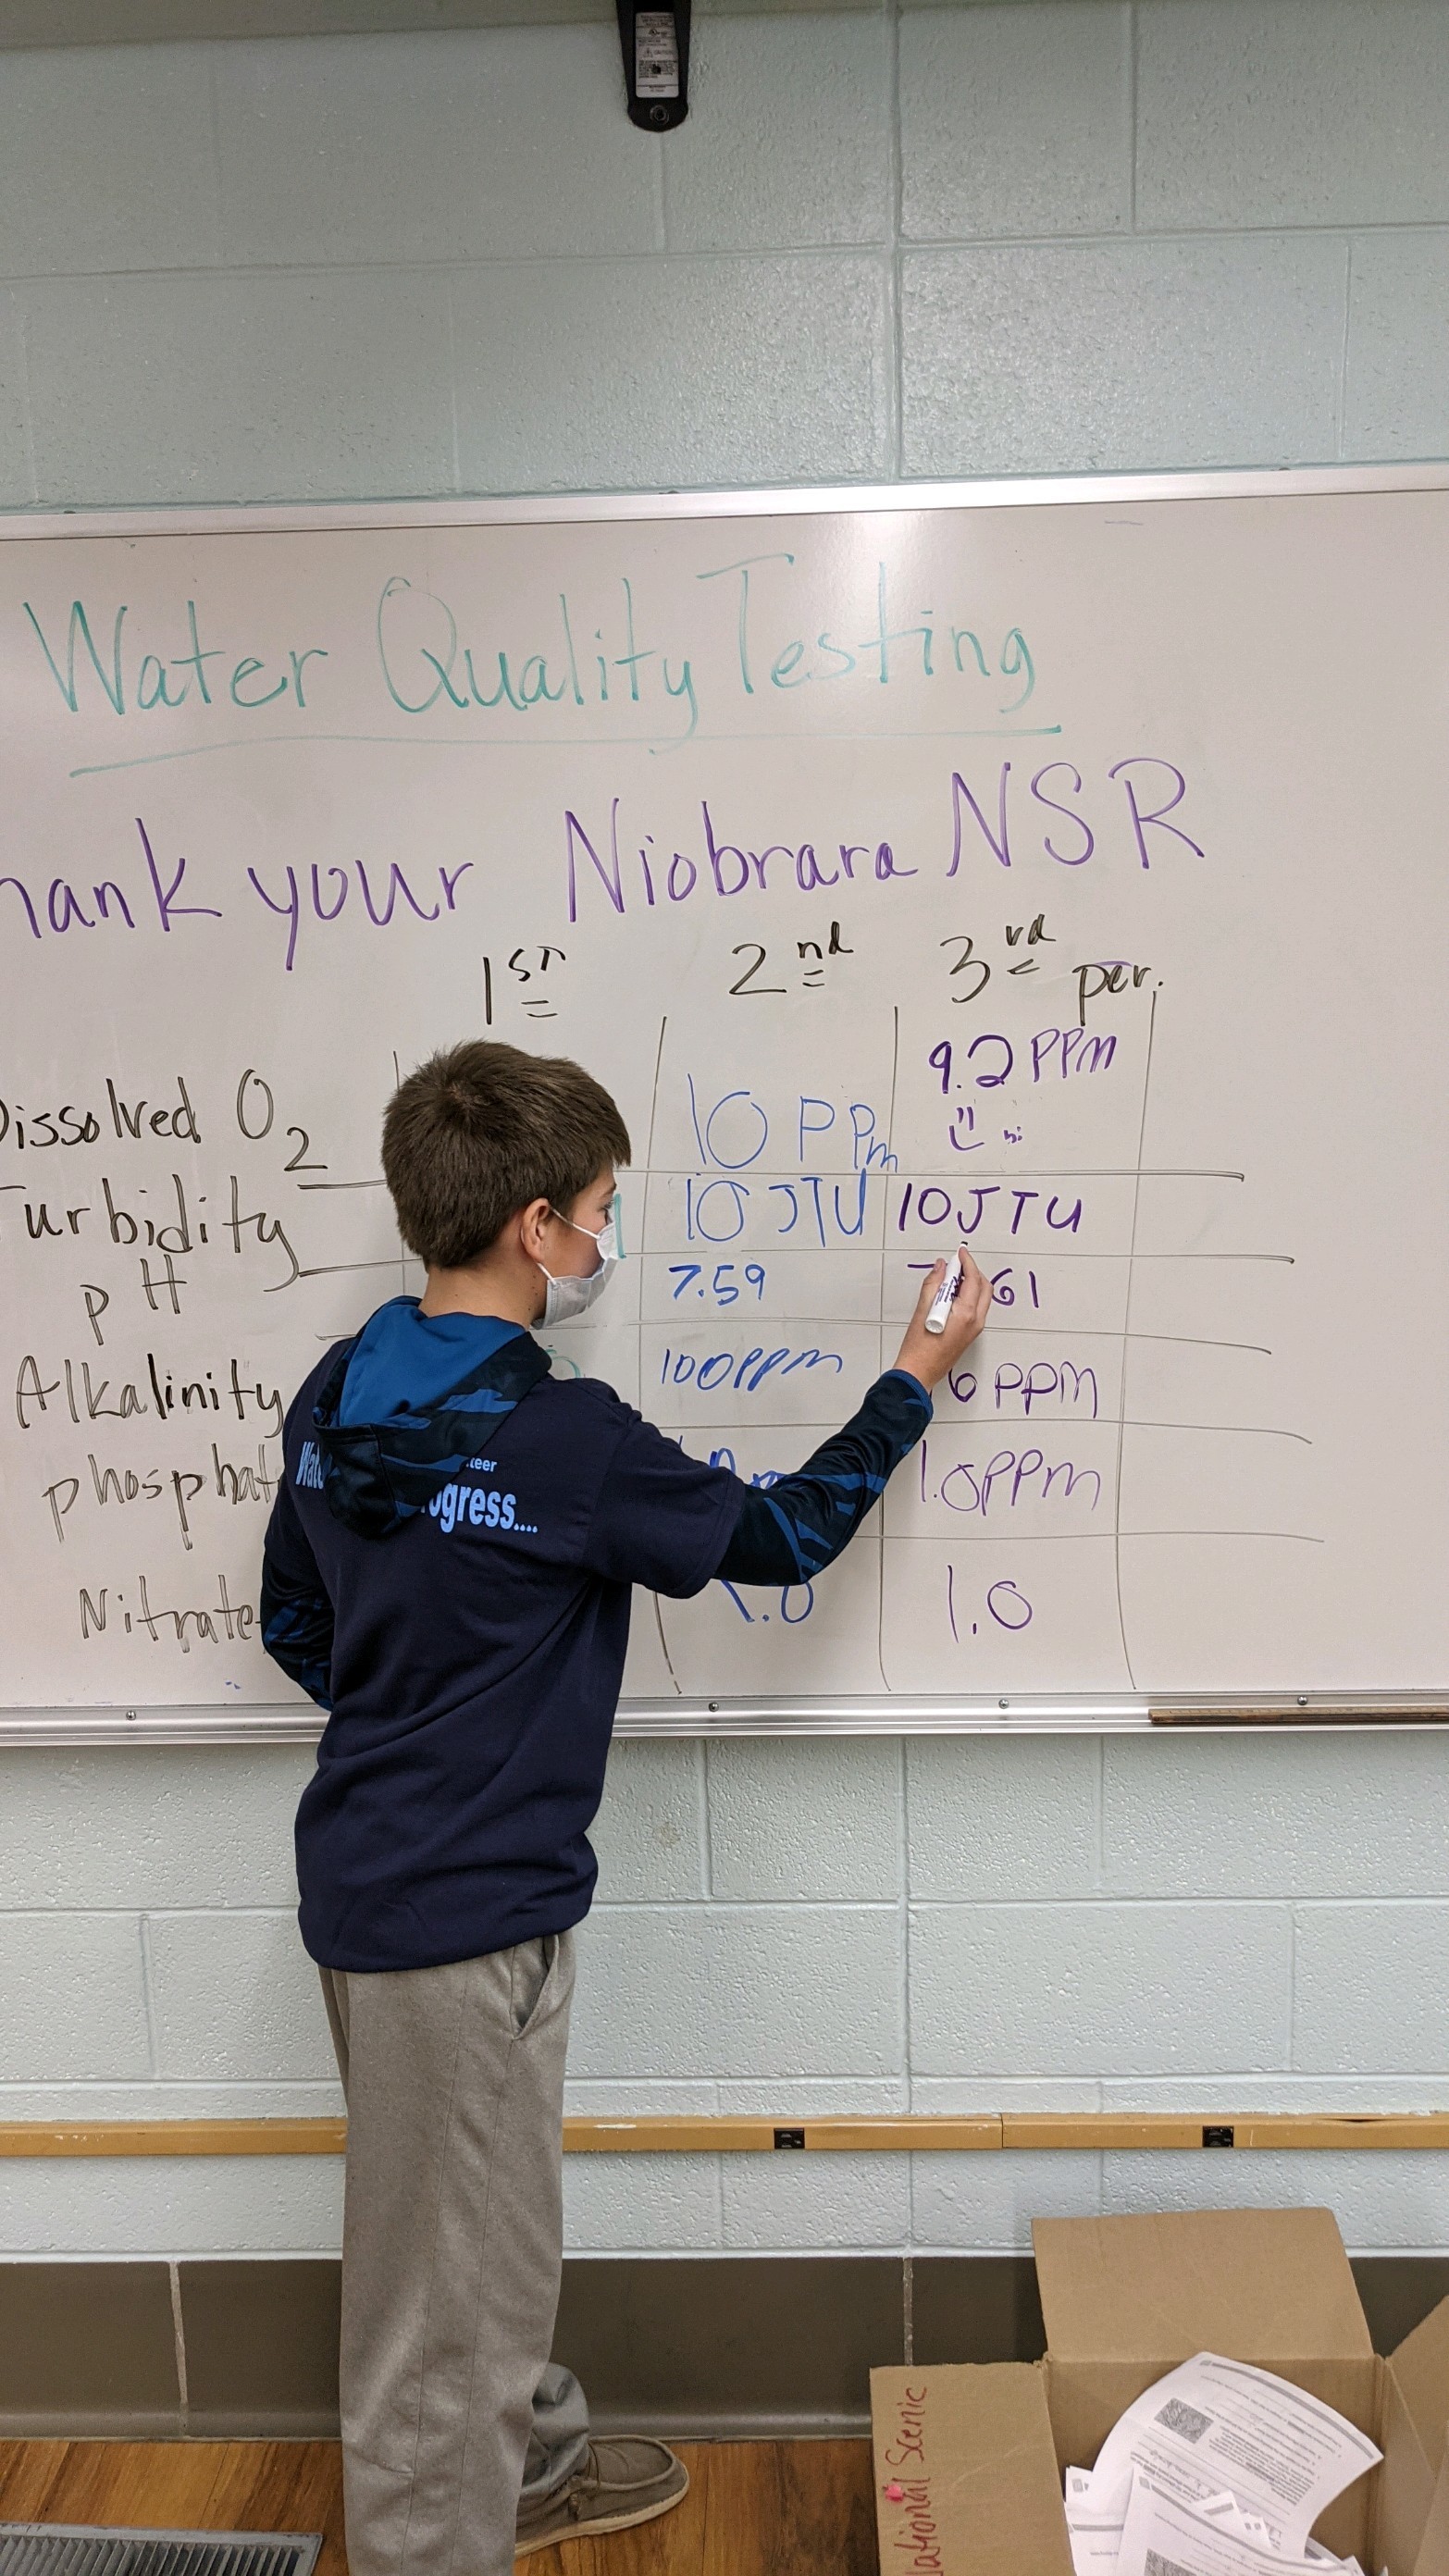 Water Quality Testing
hank your Niobrara NSR
1st 2nd 3rd per.
9.2 PPm
Dissolved O2 10 PPm
hi
Turbidity 10 JTU 10 JTU
pH 7.59 61
Alkalinity 100ppm 6 ppm
phosphat 1.0 PPm
Nitrate 1.0 1.0
Wat teer
ogress....
ational Scenic